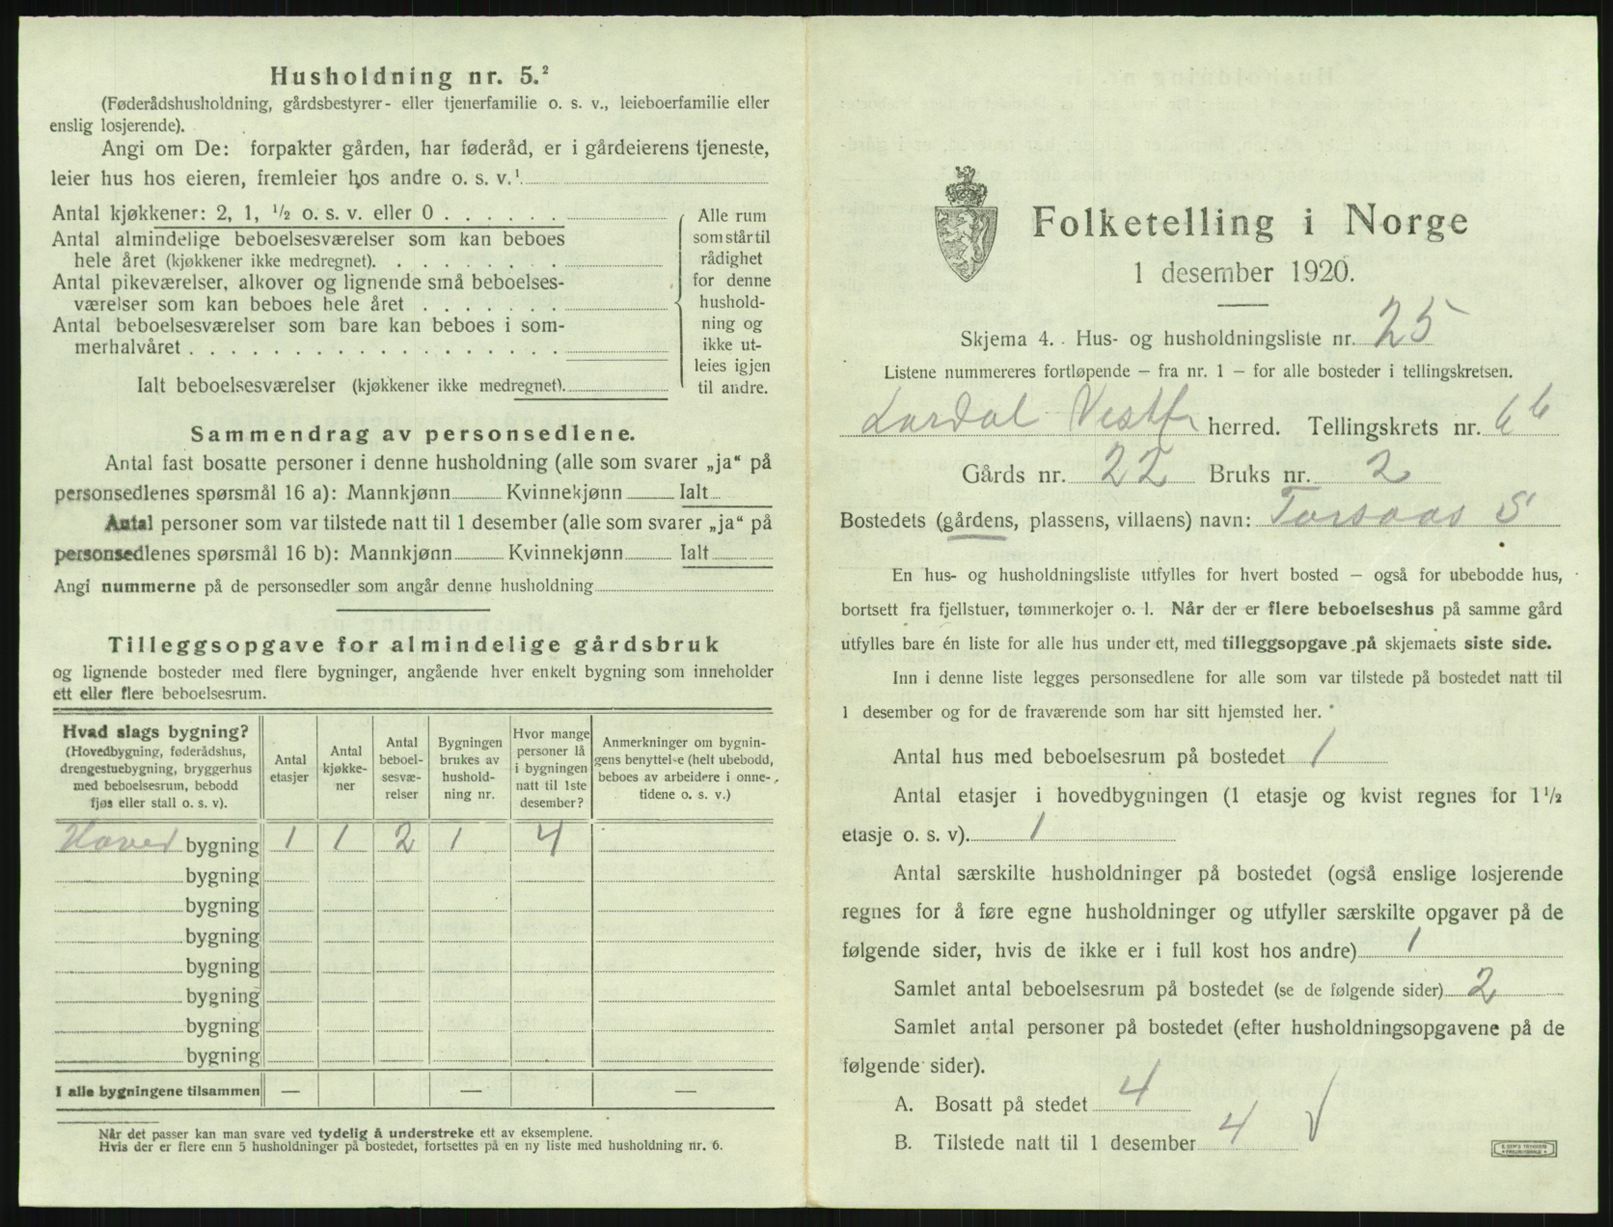 Husholdning nr. 5.²
(Føderådshusholdning, gårdsbestyrer- eller tjenerfamilie o. s. v., leieboerfamilie eller
enslig losjerende).
Angi om De: forpakter gården, har føderåd, er i gårdeierens tjeneste,
leier hus hos eieren, fremleier hos andre o. s. v.¹
Antal kjøkkener: 2, 1, ½ o. s. v. eller 0 . . . . . .
Antal almindelige beboelsesværelser som kan beboes
hele året (kjøkkener ikke medregnet). . . . . . . . .
Antal pikeværelser, alkover og lignende små beboelses-
værelser som kan beboes hele året . . . . . . .
Antal beboelsesværelser som bare kan beboes i som-
merhalvåret . . . . . . . . . . . . . . . . . .
Ialt beboelsesværelser (kjøkkener ikke medregnet).
Alle rum
som står til
rådighet
for denne
hushold-
ning og
ikke ut-
leies igjen
til andre.
Sammendrag av personsedlene.
Antal fast bosatte personer i denne husholdning (alle som svarer „ja“ på
personsedlenes spørsmål 16 a): Mannkjønn Kvinnekjønn Ialt
Antal personer som var tilstede natt til 1 desember (alle som svarer „ja“ på
personsedlenes spørsmål 16 b): Mannkjønn Kvinnekjønn Ialt
Angi nummerne på de personsedler som angår denne husholdning
Tilleggsopgave for almindelige gårdsbruk
og lignende bosteder med flere bygninger, angående hver enkelt bygning som inneholder
ett eller flere beboelsesrum.
Hvad slags bygning?
(Hovedbygning, føderådshus,
drengestuebygning, bryggerhus
med beboelsesrum, bebodd
fjøs eller stall o. s. v).
Antal
etasjer
Antal
kjøkke-
ner
Antal
beboel-
sesvæ-
relser
Bygningen
brukes av
hushold-
ning nr.
Hvor mange
personer lå
i bygningen
natt til 1ste
desember?
Anmerkninger om bygnin-
gens benyttelse (helt ubebodd,
beboes av arbeidere i onne-
tidene o. s. v.)
Hoved bygning 1 1 2 1 4
bygning
bygning
bygning
bygning
bygning
bygning
bygning
I alle bygningene tilsammen — — —
Når det passer kan man svare ved tydelig å understreke ett av eksemplene.
Hvis der er flere enn 5 husholdninger på bostedet, fortsettes på en ny liste med husholdning nr. 6.
Folketelling i Norge
1 desember 1920.
Skjema 4. Hus- og husholdningsliste nr. 25
Listene nummereres fortløpende — fra nr. 1 — for alle bosteder i tellingskretsen.
Lardal Vestf herred. Tellingskrets nr. 6 6
Gårds nr. 22 Bruks nr. 2
Bostedets (gårdens, plassens, villaens) navn: Torsaas S
En hus- og husholdningsliste utfylles for hvert bosted — også for ubebodde hus,
bortsett fra fjellstuer, tømmerkojer o. l. Når der er flere beboelseshus på samme gård
utfylles bare én liste for alle hus under ett, med tilleggsopgave på skjemaets siste side.
Inn i denne liste legges personsedlene for alle som var tilstede på bostedet natt til
1 desember og for de fraværende som har sitt hjemsted her.
Antal hus med beboelsesrum på bostedet 1
Antal etasjer i hovedbygningen (1 etasje og kvist regnes for 1½
etasje o. s. v). 1
Antal særskilte husholdninger på bostedet (også enslige losjerende
regnes for å føre egne husholdninger og utfyller særskilte opgaver på de
følgende sider, hvis de ikke er i full kost hos andre) 1
Samlet antal beboelsesrum på bostedet (se de følgende sider) 2
Samlet antal personer på bostedet (efter husholdningsopgavene på de
følgende sider).
A. Bosatt på stedet 4
B. Tilstede natt til 1 desember 4 √